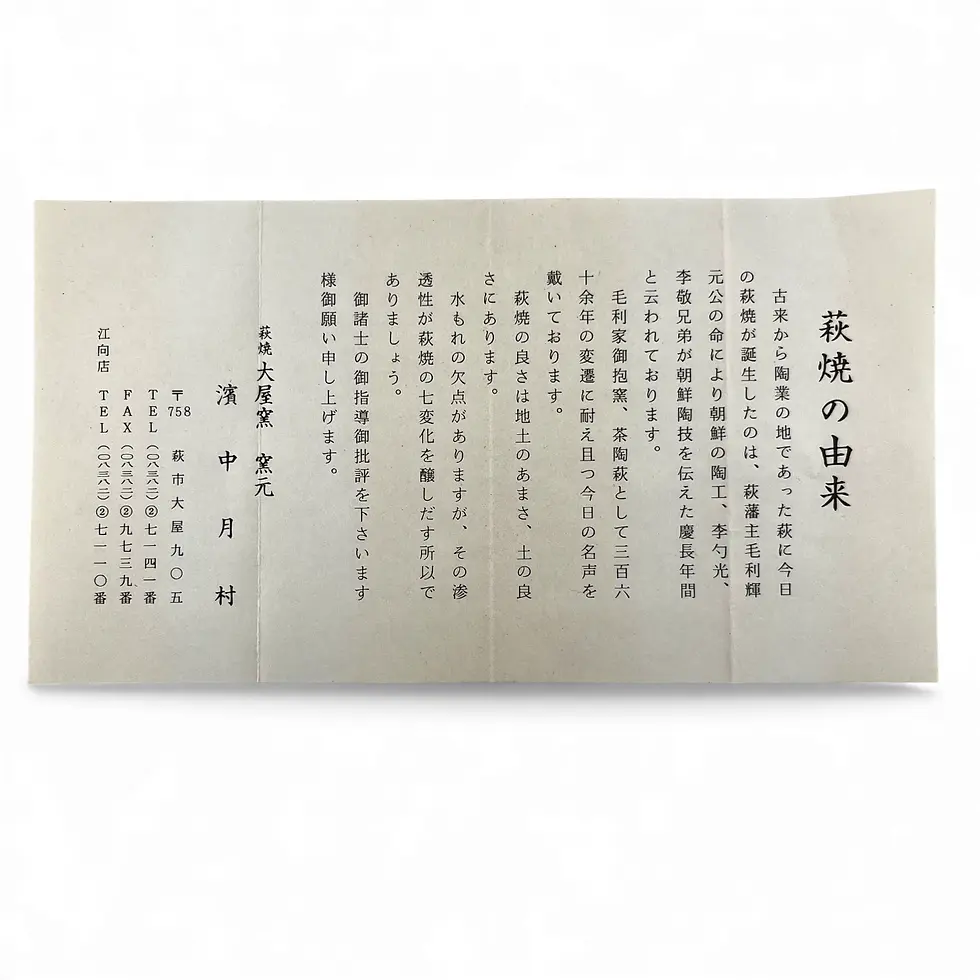 萩焼の由来
古来から陶業の地であった萩に今日
の萩焼が誕生したのは、萩藩主毛利輝
元公の命により朝鮮の陶工、李勺光、
李敬兄弟が朝鮮陶技を伝えた慶長年間
と云われております。
毛利家御抱窯、茶陶萩として三百六
十余年の変遷に耐え且つ今日の名声を
戴いております。
萩焼の良さは地土のあまさ、土の良
さにあります。
水もれの欠点がありますが、その滲
透性が萩焼の七変化を醸しだす所以で
ありましょう。
御諸士の御指導御批評を下さいます
様御願い申し上げます。
萩焼大屋窯 窯元
濱中月村
〒758 萩市大屋九〇五
TEL(〇八三八二)②七一四一番
FAX(〇八三八二)②九七三九番
江向店 TEL(〇八三八二)②七一一〇番